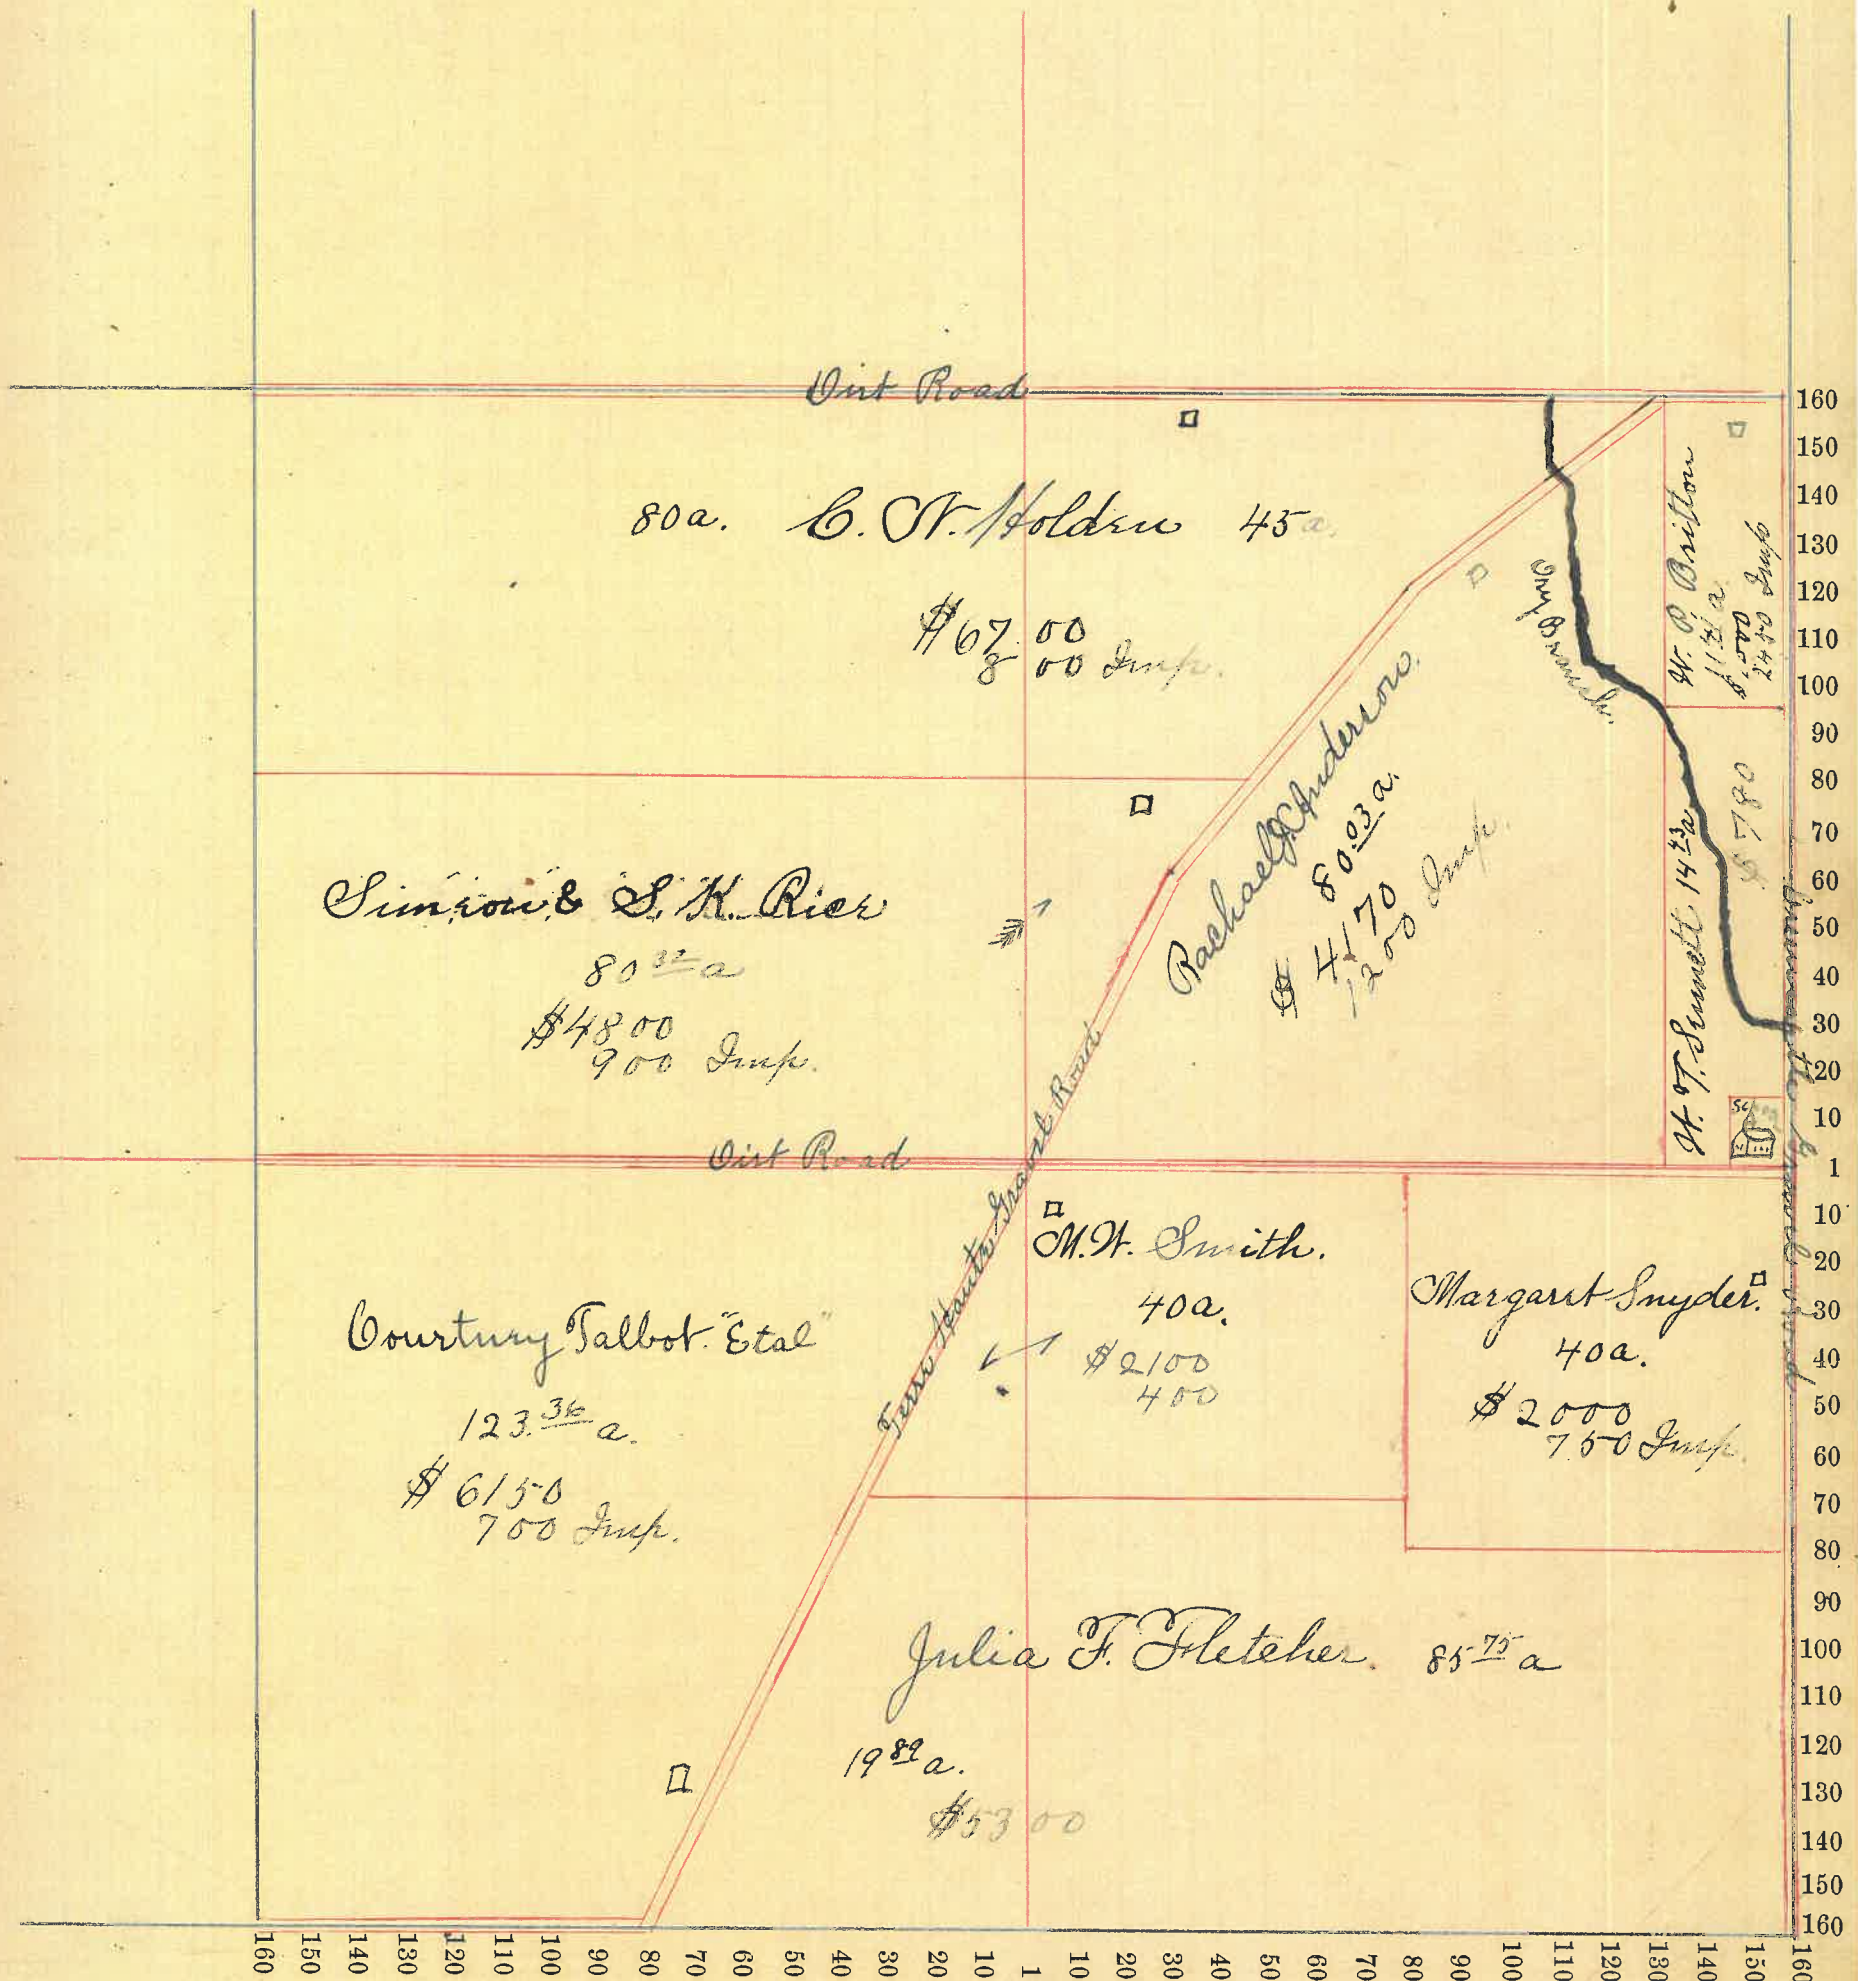 Dirt Road
80a. C. N. Holden 45a.
$6700
800 Imp.
W. P. Britton
2450 Imp
Dry Branch.
Rachael J. Anderson.
80.03 a.
$4170
1200 Imp.
H. T. Sennett 14 23 a
$780
Simeon & S. K. Rice
80 32 a
$4800
900 Imp.
Dirt Road
Terre Haute Gravel Road
M. W. Smith.
40a.
$2100
400
Margaret Snyder.
40a.
$2000
750 Imp.
Courtney Talbot. "Etal"
123.36 a.
$6150
700 Imp.
Julia F. Fletcher. 85 75 a
19 89 a.
$5300
160
150
140
130
120
110
100
90
80
70
60
50
40
30
20
10
1
10
20
30
40
50
60
70
80
90
100
110
120
130
140
150
160
160 150 140 130 120 110 100 90 80 70 60 50 40 30 20 10 1 10 20 30 40 50 60 70 80 90 100 110 120 130 140 150 160